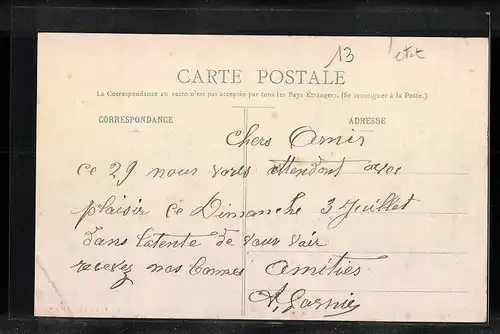 13 etat
CARTE POSTALE
La Correspondance au recto n'est pas acceptée par tous les Pays Étrangers. (Se renseigner à la Poste.)
CORRESPONDANCE
ADRESSE
Chers Amis
Ce 29 nous vous attendont avec
plaisir Ce Dimanche 3 Juillet
dans latente de vous voir
recevez nos bonnes amitiés
A, Garnier